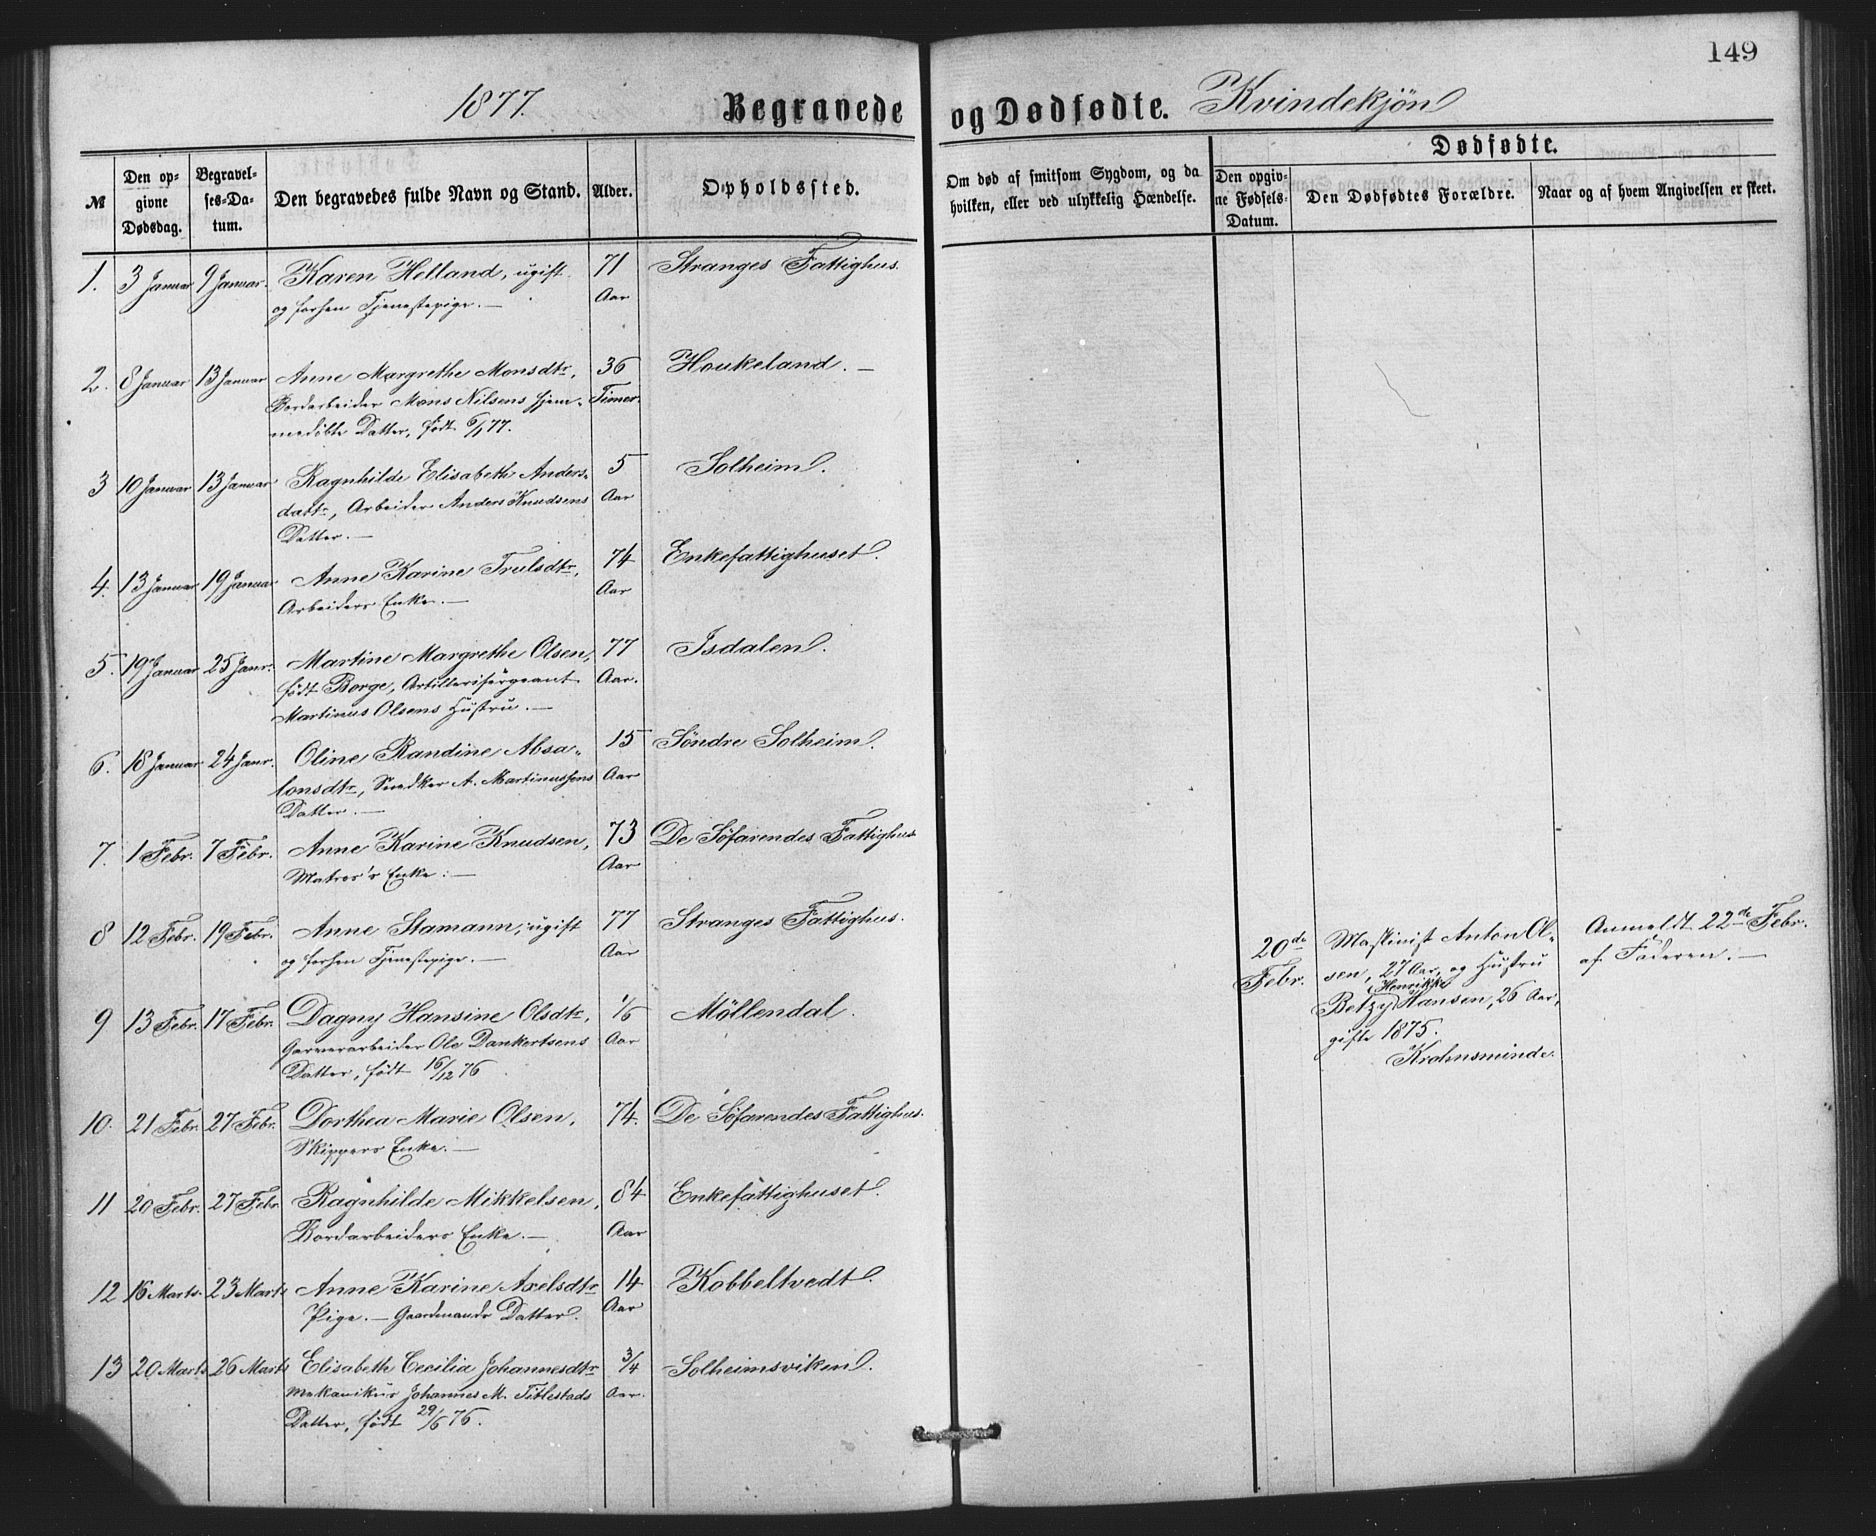 149
1877. Begravede og Dødfødte. Kvindekjøn
№ Den opgivne Dødsdag. Begravelses-Datum. Den begravedes fulde Navn og Stand. Alder. Opholdssted. Om død af smitsom Sygdom, og da hvilken, eller ved ulykkelig Hændelse. Dødfødte.
Den opgivne Fødsels-Datum. Den Dødfødtes Forældre. Naar og af hvem Angivelsen er skeet.
1. 3 Januar 9 Januar. Karen Helland, ugift 71 Stranges Fattighus.
og forhen Tjenestepige. — Aar
2. 8 Januar 13 Januar Anne Margrethe Monsdtr, 36 Houkeland. —
Bordarbeider Mons Nilsens hjem- Timer.
medøbte Datter, født 6/1 77.
3 10 Januar 13 Januar Ragnhilde Elisabeth Anders- 5 Solheim.
datr, Arbeider Anders Knudsens Aar
Datter. —
4. 13 Januar 19 Januar Anne Karine Trulsdtr, 74 Enkefattighuset.
Arbeiders Enke. — Aar
5. 19 Januar 25 Janr. Martine Margrethe Olsen, 77 Isdalen.
født Borge, Artillerisergeant Aar.
Martinus Olsens Hustru. —
6. 18 Januar 24 Janr. Oline Randine Absa- 15 Søndre Solheim.
lonsdtr, Snedker A. Martinussens Aar
Datter. —
7. 1 Febr. 7 Febr. Anne Karine Knudsen, 73 De Søfarendes Fattighus
Matros's Enke. — Aar
8 12 Febr. 19 Febr. Anne Stamann, ugift 77 Stranges Fattighus.
og forhen Tjenestepige. — Aar
20de Febr. Maskinist Anton Ol- Anmeldt 22de Febr.
sen, 27 Aar, og Hustru af Faderen. —
Betzy Henrikke Hansen, 26 Aar,
gifte 1875.
Krohnsminde.
9 13 Febr. 17 Febr. Dagny Hansine Olsdtr, 1/6 Möllendal.
Garverarbeider Ole Dankertsens Aar
Datter, født 16/12 76
10. 21 Febr. 27 Febr. Dorthea Marie Olsen, 74. De Søfarendes Fattighus.
Skippers Enke. —
11 20 Febr. 27 Febr. Ragnhilde Mikkelsen, 84 Enkefattighuset.
Bordarbeiders Enke. — Aar
12 16 Marts. 23 Marts Anne Karine Axelsdtr 14 Kobbeltvedt.
Pige. — Gaardmands Datter. Aar
13 20 Marts 26 Marts Elisabeth Cecilia Johannesdtr 3/4 Solheimsviken.
Mekanikus Johannes M. Titlestads Aar.
Datter, født 29/6 76.